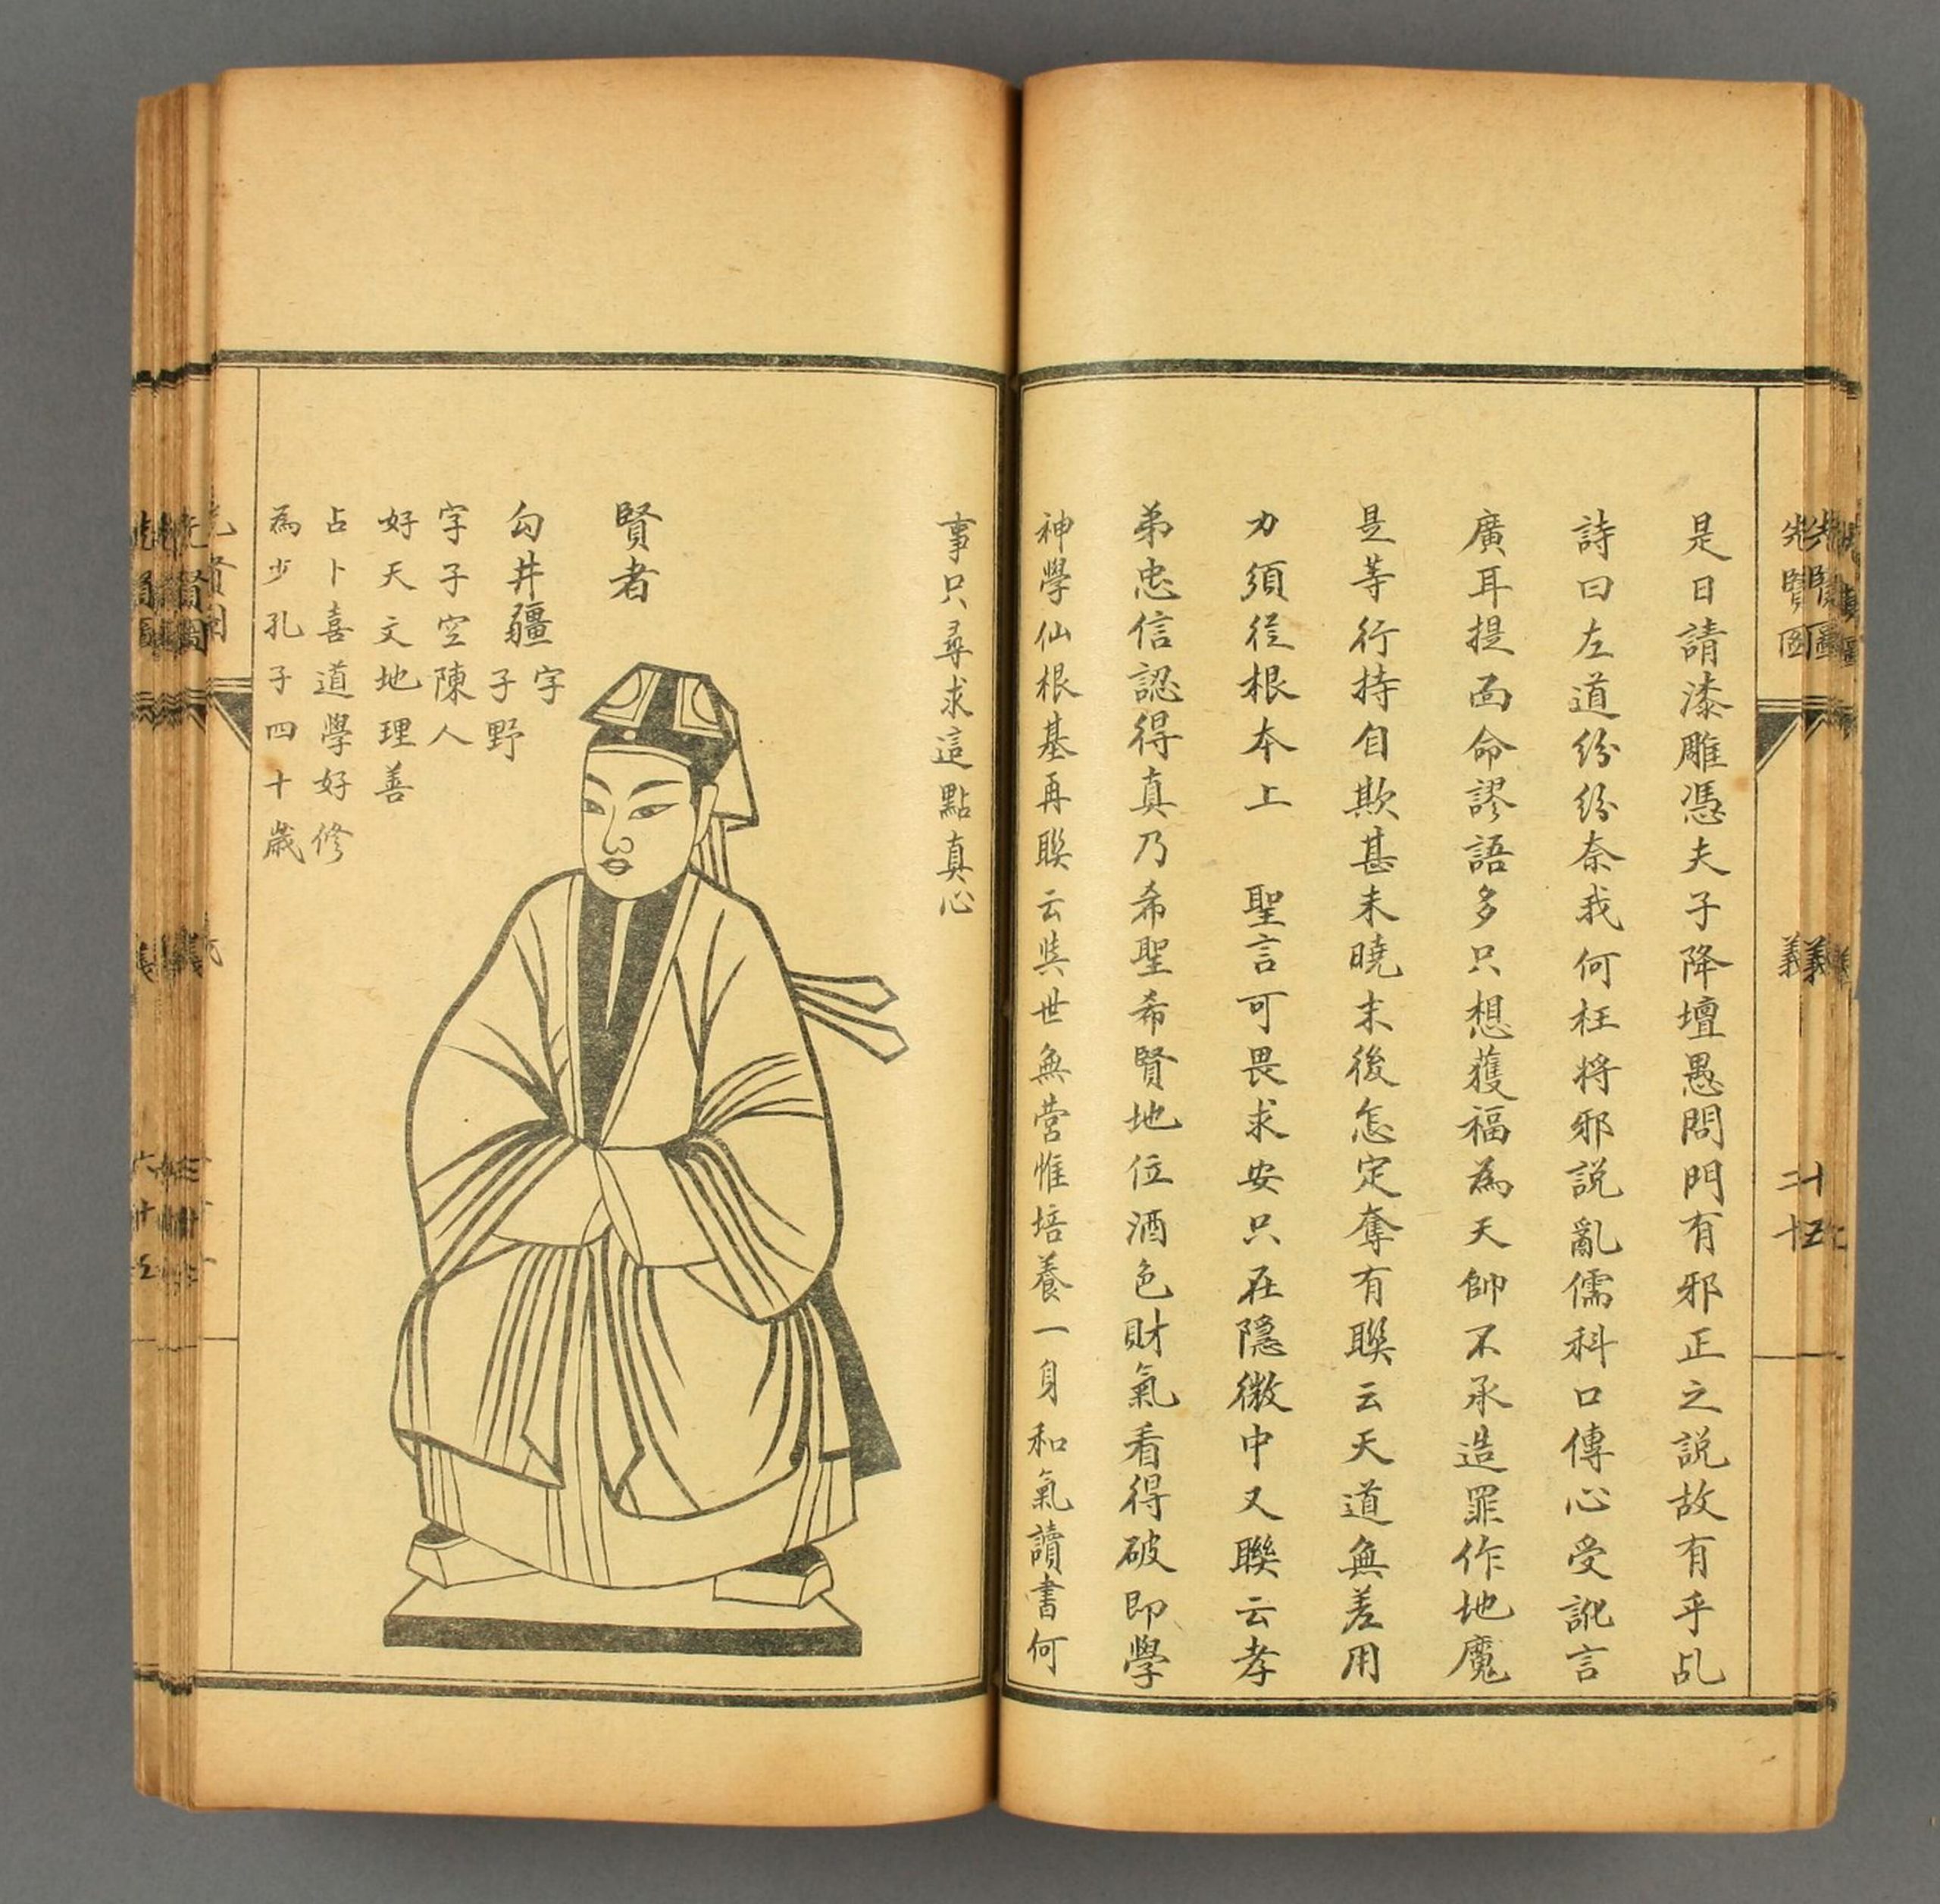 先賢圖
義
二十
是日請漆雕憑夫子降壇愚問門有邪正之説故有乎乩
詩曰左道紛紛奈我何枉将邪説亂儒科口傳心受訛言
廣耳提面命謬語多只想獲福為天帥不承造罪作地魔
是等行持自欺甚未曉末後怎定奪有聯云天道無差用
力須從根本上 聖言可畏求安只在隱微中又聯云孝
弟忠信認得真乃希聖希賢地位酒色財氣看得破即學
神學仙根基再聯云與世無营惟培養一身和氣讀書何
事只尋求這點真心
賢者
勾井疆 字子野
字子空陳人
好天文地理善
占卜喜道學好修
為少孔子四十歲